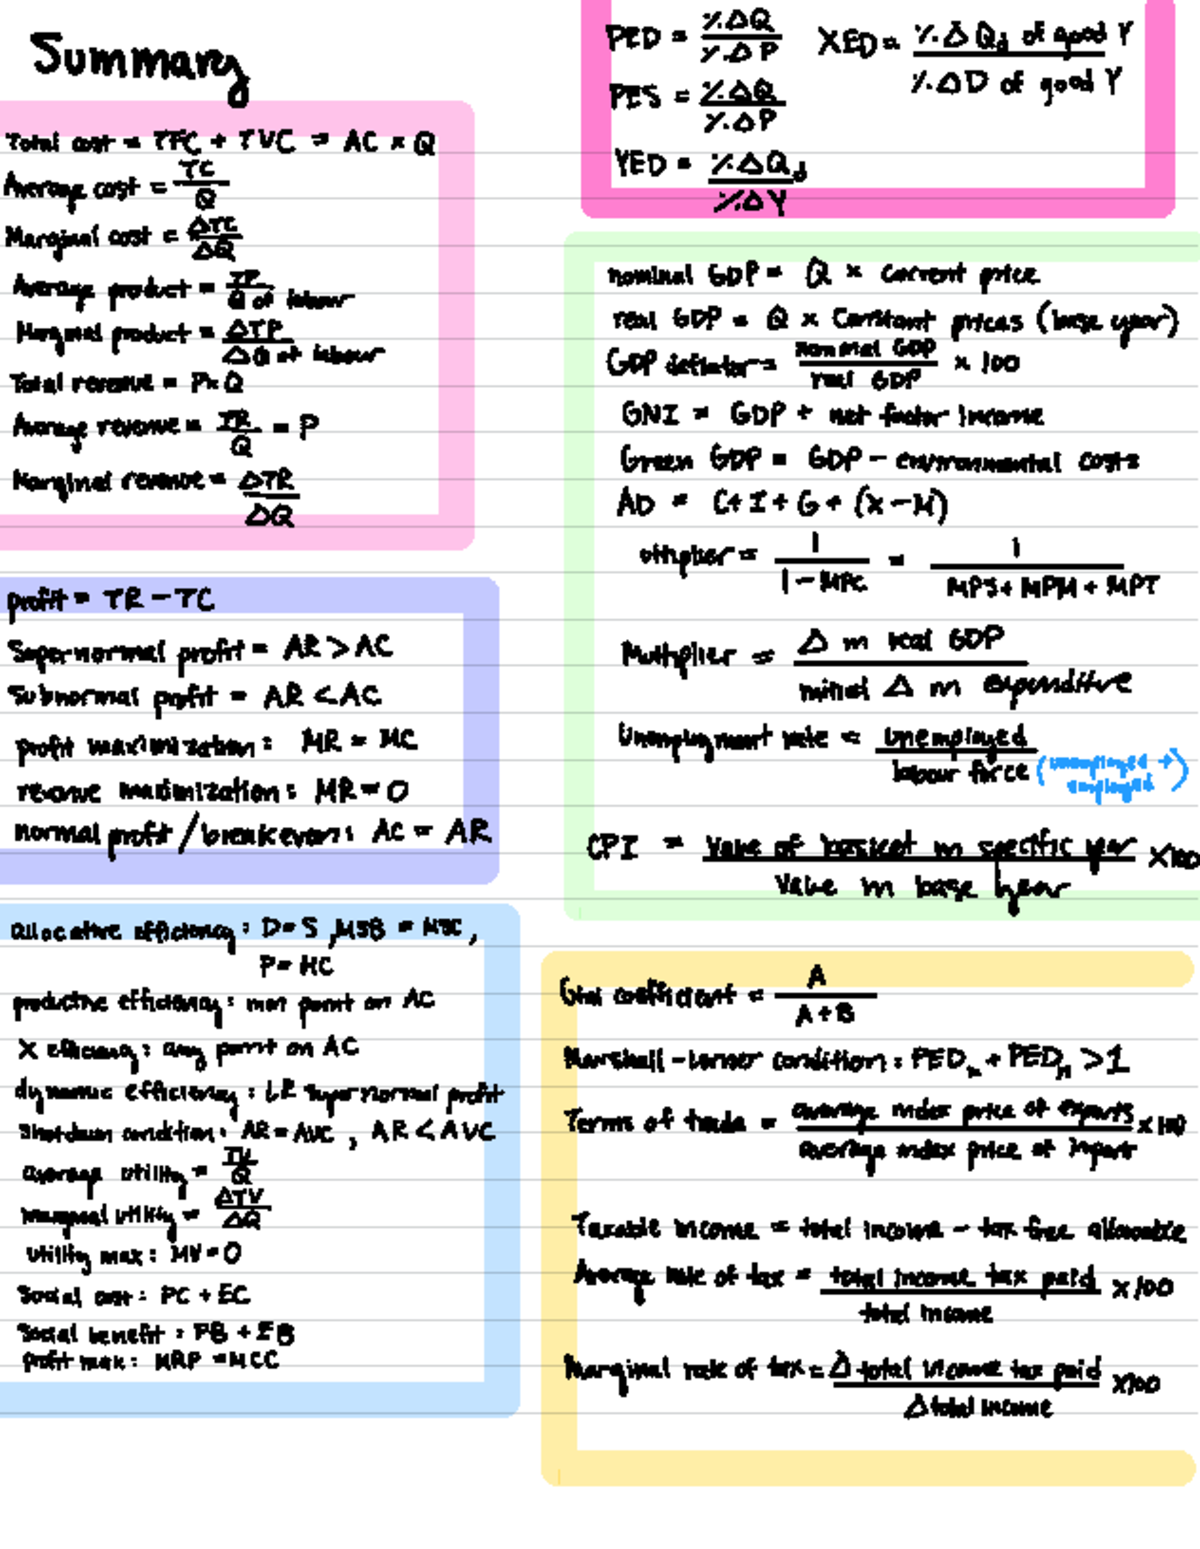 Summary
Total cost = TFC + TVC = AC × Q
Average cost = TC / Q
Marginal cost = ΔTC / ΔQ
Average product = TP / Q of labour
Marginal product = ΔTP / ΔQ of labour
Total revenue = P×Q
Average revenue = TR / Q = P
Marginal revenue = ΔTR / ΔQ
profit = TR − TC
Supernormal profit = AR > AC
Subnormal profit = AR < AC
profit maximization: MR = MC
revenue maximization: MR = 0
normal profit / breakeven: AC = AR
allocative efficiency: D=S, MSB = MSC,
P=MC
productive efficiency: min point on AC
X efficiency: any point on AC
dynamic efficiency: LR supernormal profit
Shutdown condition: AR = AVC, AR < AVC
average utility = TU / Q
marginal utility = ΔTU / ΔQ
utility max: MU = 0
Social cost: PC + EC
Social benefit: PB + EB
profit max: MRP = MCC
PED = %ΔQ / %ΔP
XED = %ΔQd of good Y / %ΔD of good Y
PES = %ΔQ / %ΔP
YED = %ΔQd / %ΔY
nominal GDP = Q × current price
real GDP = Q × Constant prices (base year)
GDP deflator = nominal GDP / real GDP × 100
GNI = GDP + net factor income
Green GDP = GDP − environmental costs
AD = C+I+G+(X−M)
= 1 / 1−MPC = 1 / MPS + MPM + MPT
Multiplier = Δ in real GDP / initial Δ in expenditure
Unemployment rate = Unemployed / labour force (unemployed + employed)
CPI = Value of basket in specific year / Value in base year ×100
Gini coefficient = A / A+B
Marshall-Lerner condition: PED + PED > 1
Terms of trade = average index price of exports / average index price of import × 100
Taxable income = total income − tax free allowance
Average rate of tax = total income tax paid / total income ×100
Marginal rate of tax = Δ total income tax paid / Δ total income ×100